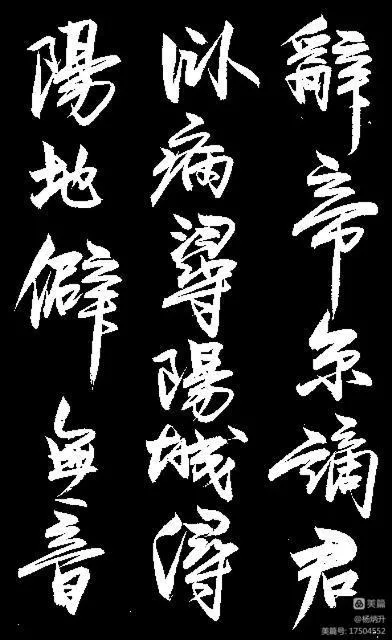 辭帝京謫居
卧病潯陽城潯
陽地僻無音
美篇
@杨炳升
美篇号: 17504552